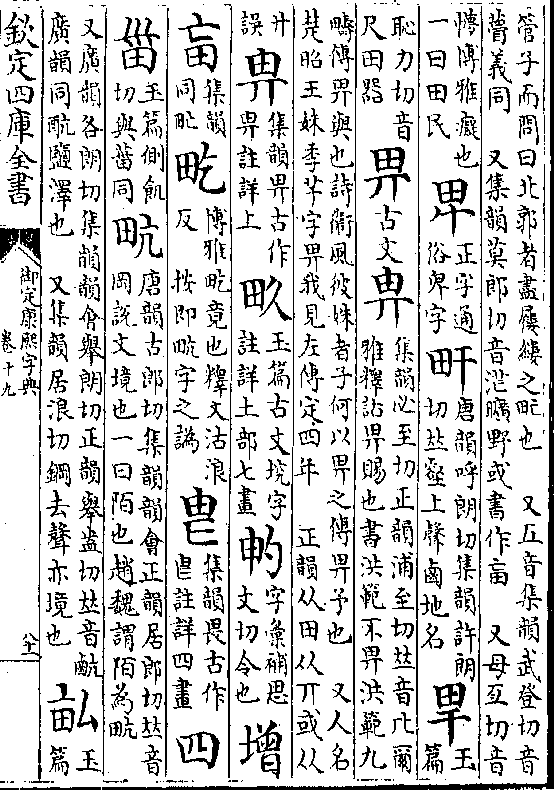 管子而問曰北郭者盡屨縷之甿也　又五音集韻武登切音
瞢義同　又集韻莫郎切音茫曠野或書作畜　又母亙切音
懵博雅癡也
一曰田民　畁　正字通
俗卑字　𤰞　唐韻呼朗切集韻許朗
切𠀤壑上聲鹵地名　𤰭　玉
篇
恥力切音
尺田器　畀　古文𢌿　集韻必至切正韻浦至切𠀤音比爾
雅釋詁畀賜也書洪範不畀洪範九
疇傳畀與也詩衞風彼姝者子何以畀之傳畀予也　又人名
楚昭王妹季芊字畀我見左傳定四年　正韻从田从丌或从
廾
誤　𢌿　集韻畀古作
𢌿註詳上　畂　玉篇古文境字
註詳土部七畫　畃　字彙硝思
文切令也　增
𤰡　集韻
同甿　𤱁　博雅𤱁竟也釋文沽浪
反　按即畖字之譌　㽕　集韻畏古作
㽕註詳四畫　四
甾　玉篇側飢
切與菑同　畖　唐韻古郎切集韻韻會正韻居郎切𠀤音
岡說文境也一曰陌也趙魏謂陌為畖
又廣韻各朗切集韻韻會舉朗切正韻舉盎切𠀤音䴚
廣韻同䴚鹽澤也　又集韻居浪切鋼去聲亦境也　畆　玉
篇
欽定四庫全書
御定康熙字典
卷十九